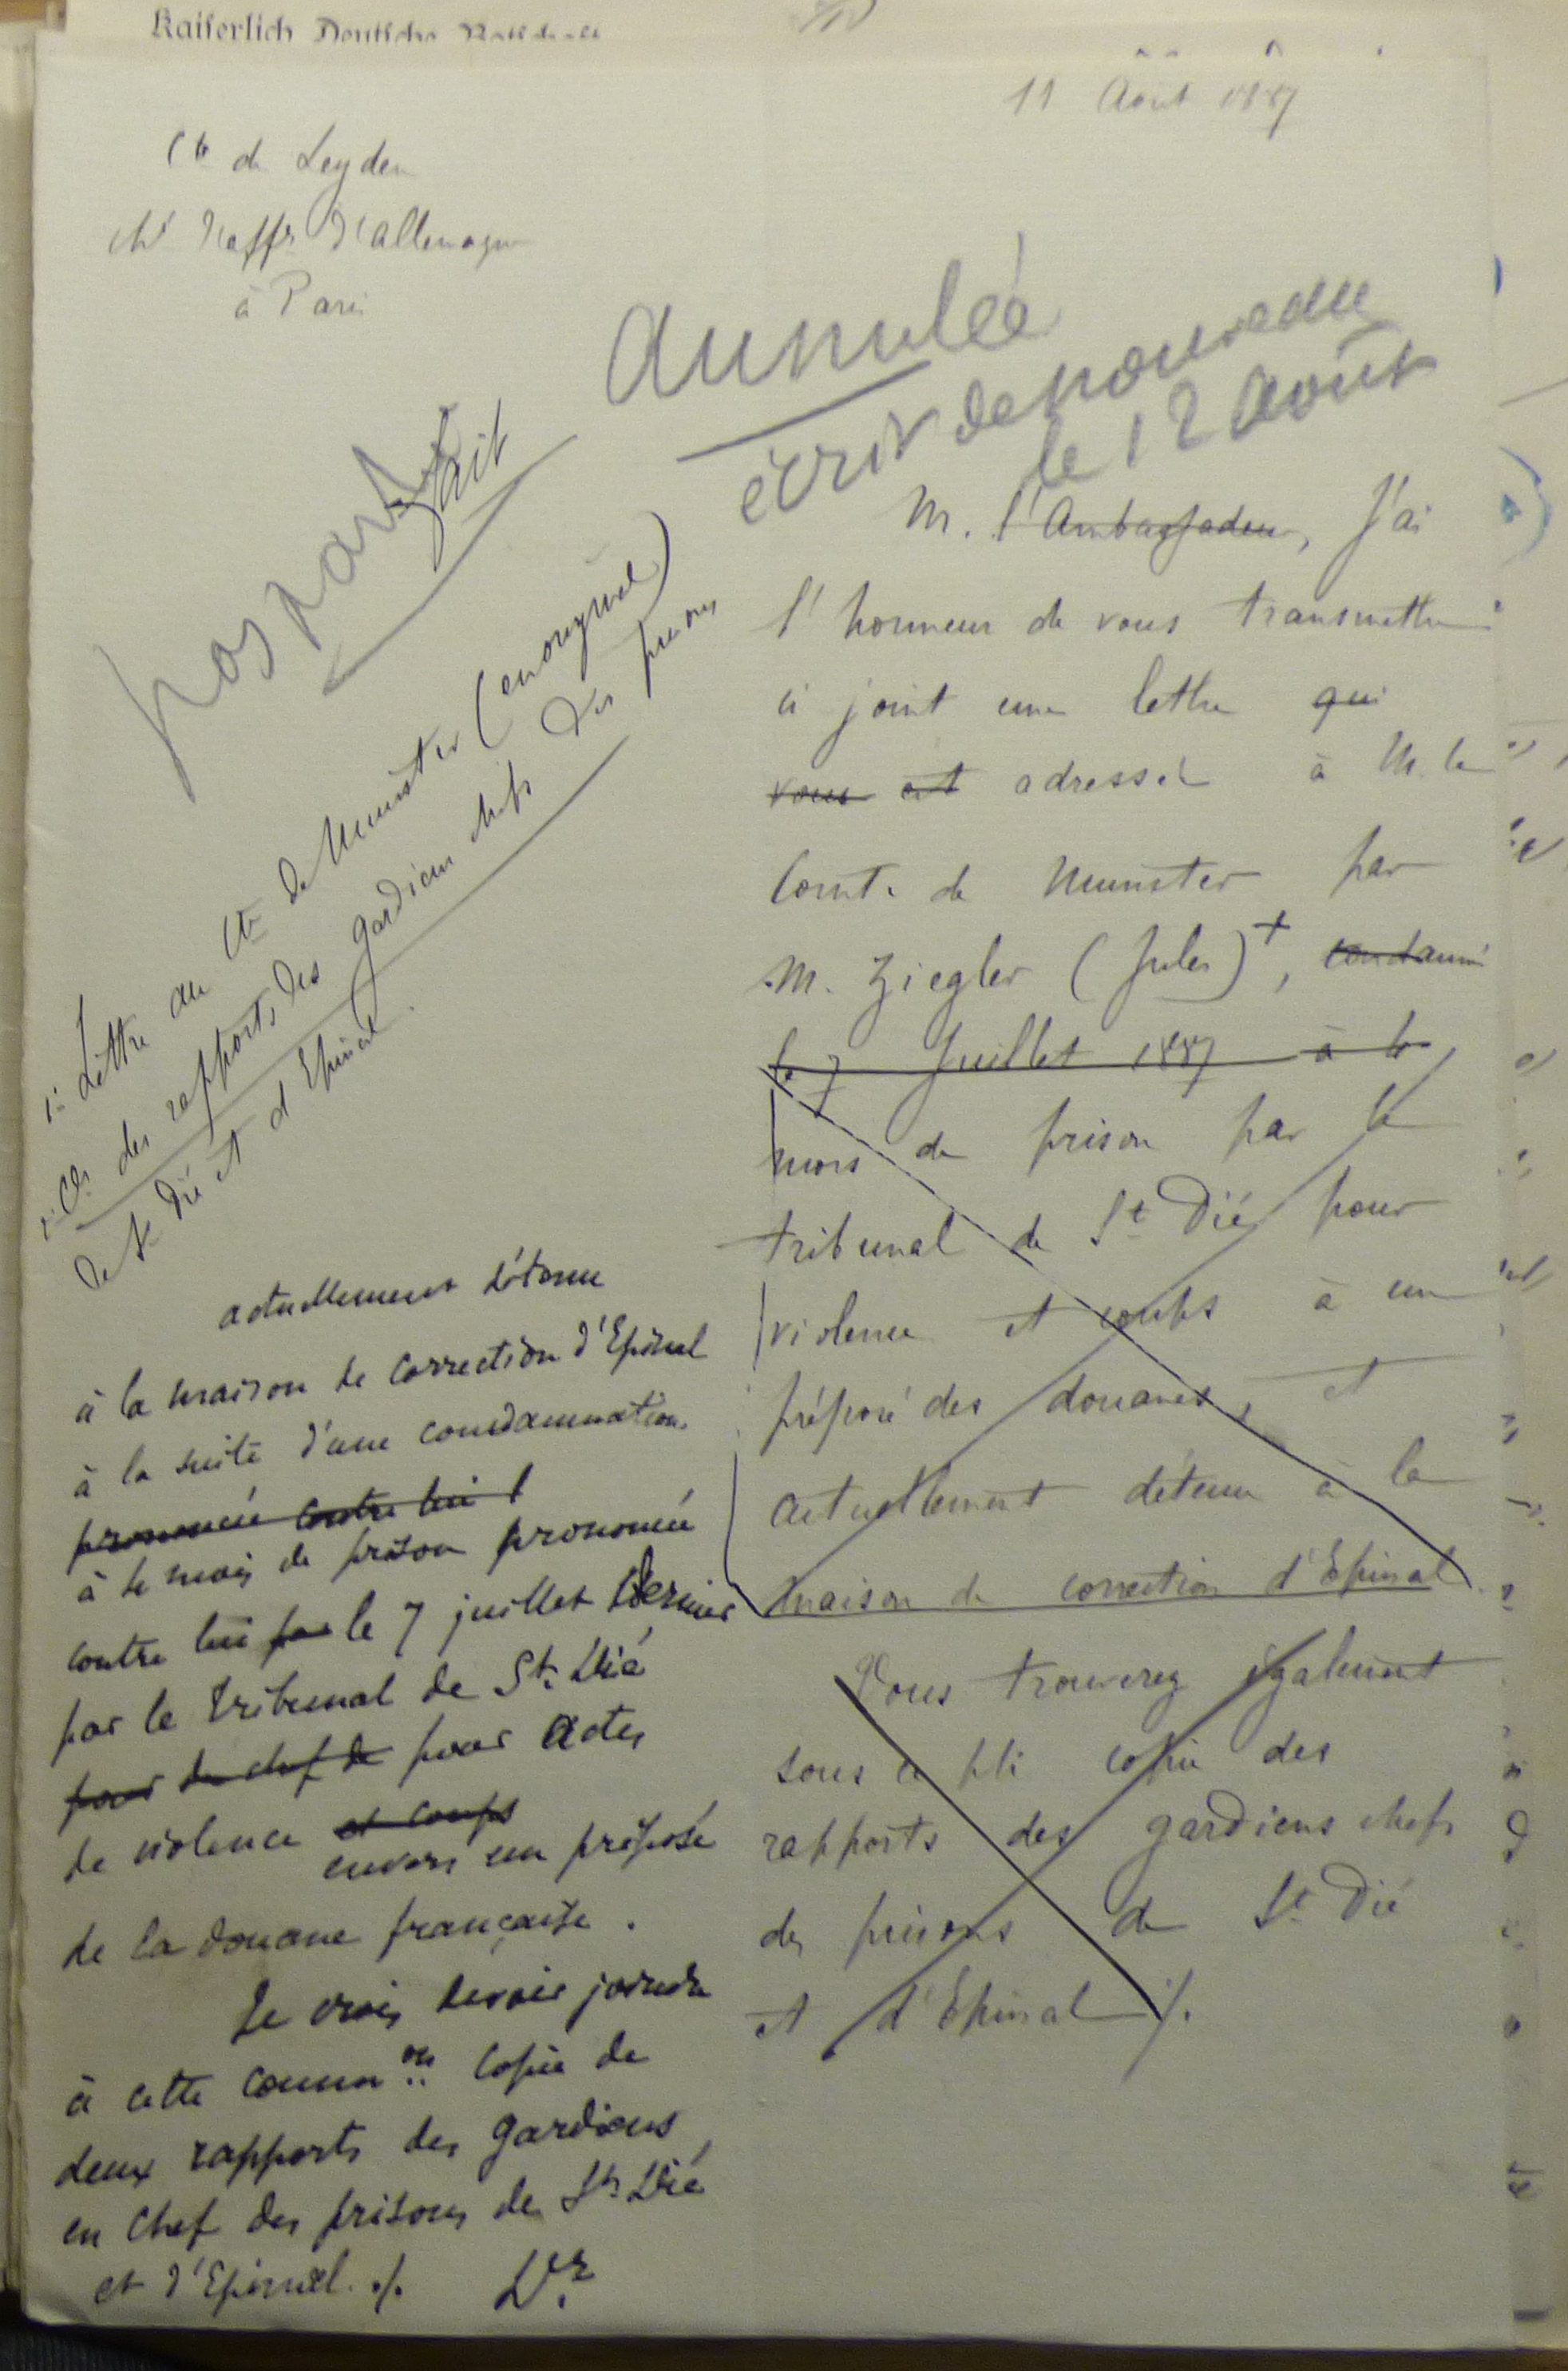 Kaiserlich Deutsche Botschaft
11 Août 1887
Cte de Leyden
ché d'aff's d'allemagne
à Paris
annulée
écrit de nouveau
le 12 août
pas parti
fait
1° Lettre au Cte de Munster (en original)
2° Cie des rapports des gardiens chefs des prisons
de St Dié et d'Epinal.
M. l'Ambassadeur, J'ai
l'honneur de vous transmettre
ci joint une lettre qui
vous est adressée à M. le
Comte de Munster par
M. Ziegler (Jules) +, condamné
le 7 Juillet 1887 à
mois de prison par le
tribunal de St Dié pour
violence et coups à un
préposé des douanes, et
actuellement détenu à la
maison de correction d'Epinal
Vous trouverez également
sous ce pli copie des
rapports des gardiens chefs
des prisons de St Dié
et d'Epinal ./.
actuellement détenu
à la maison de correction d'Epinal
à la suite d'une condamnation
prononcée contre lui
à mois de prison prononcée
contre lui par le 7 juillet dernier
par le tribunal de St. Dié
pour du chef de pour actes
de violence et coups
envers un préposé
de la douane française.
Je crois devoir joindre
à cette common copie de
deux rapports des gardiens
en chef des prisons de St Dié
et d'Epinal ./.